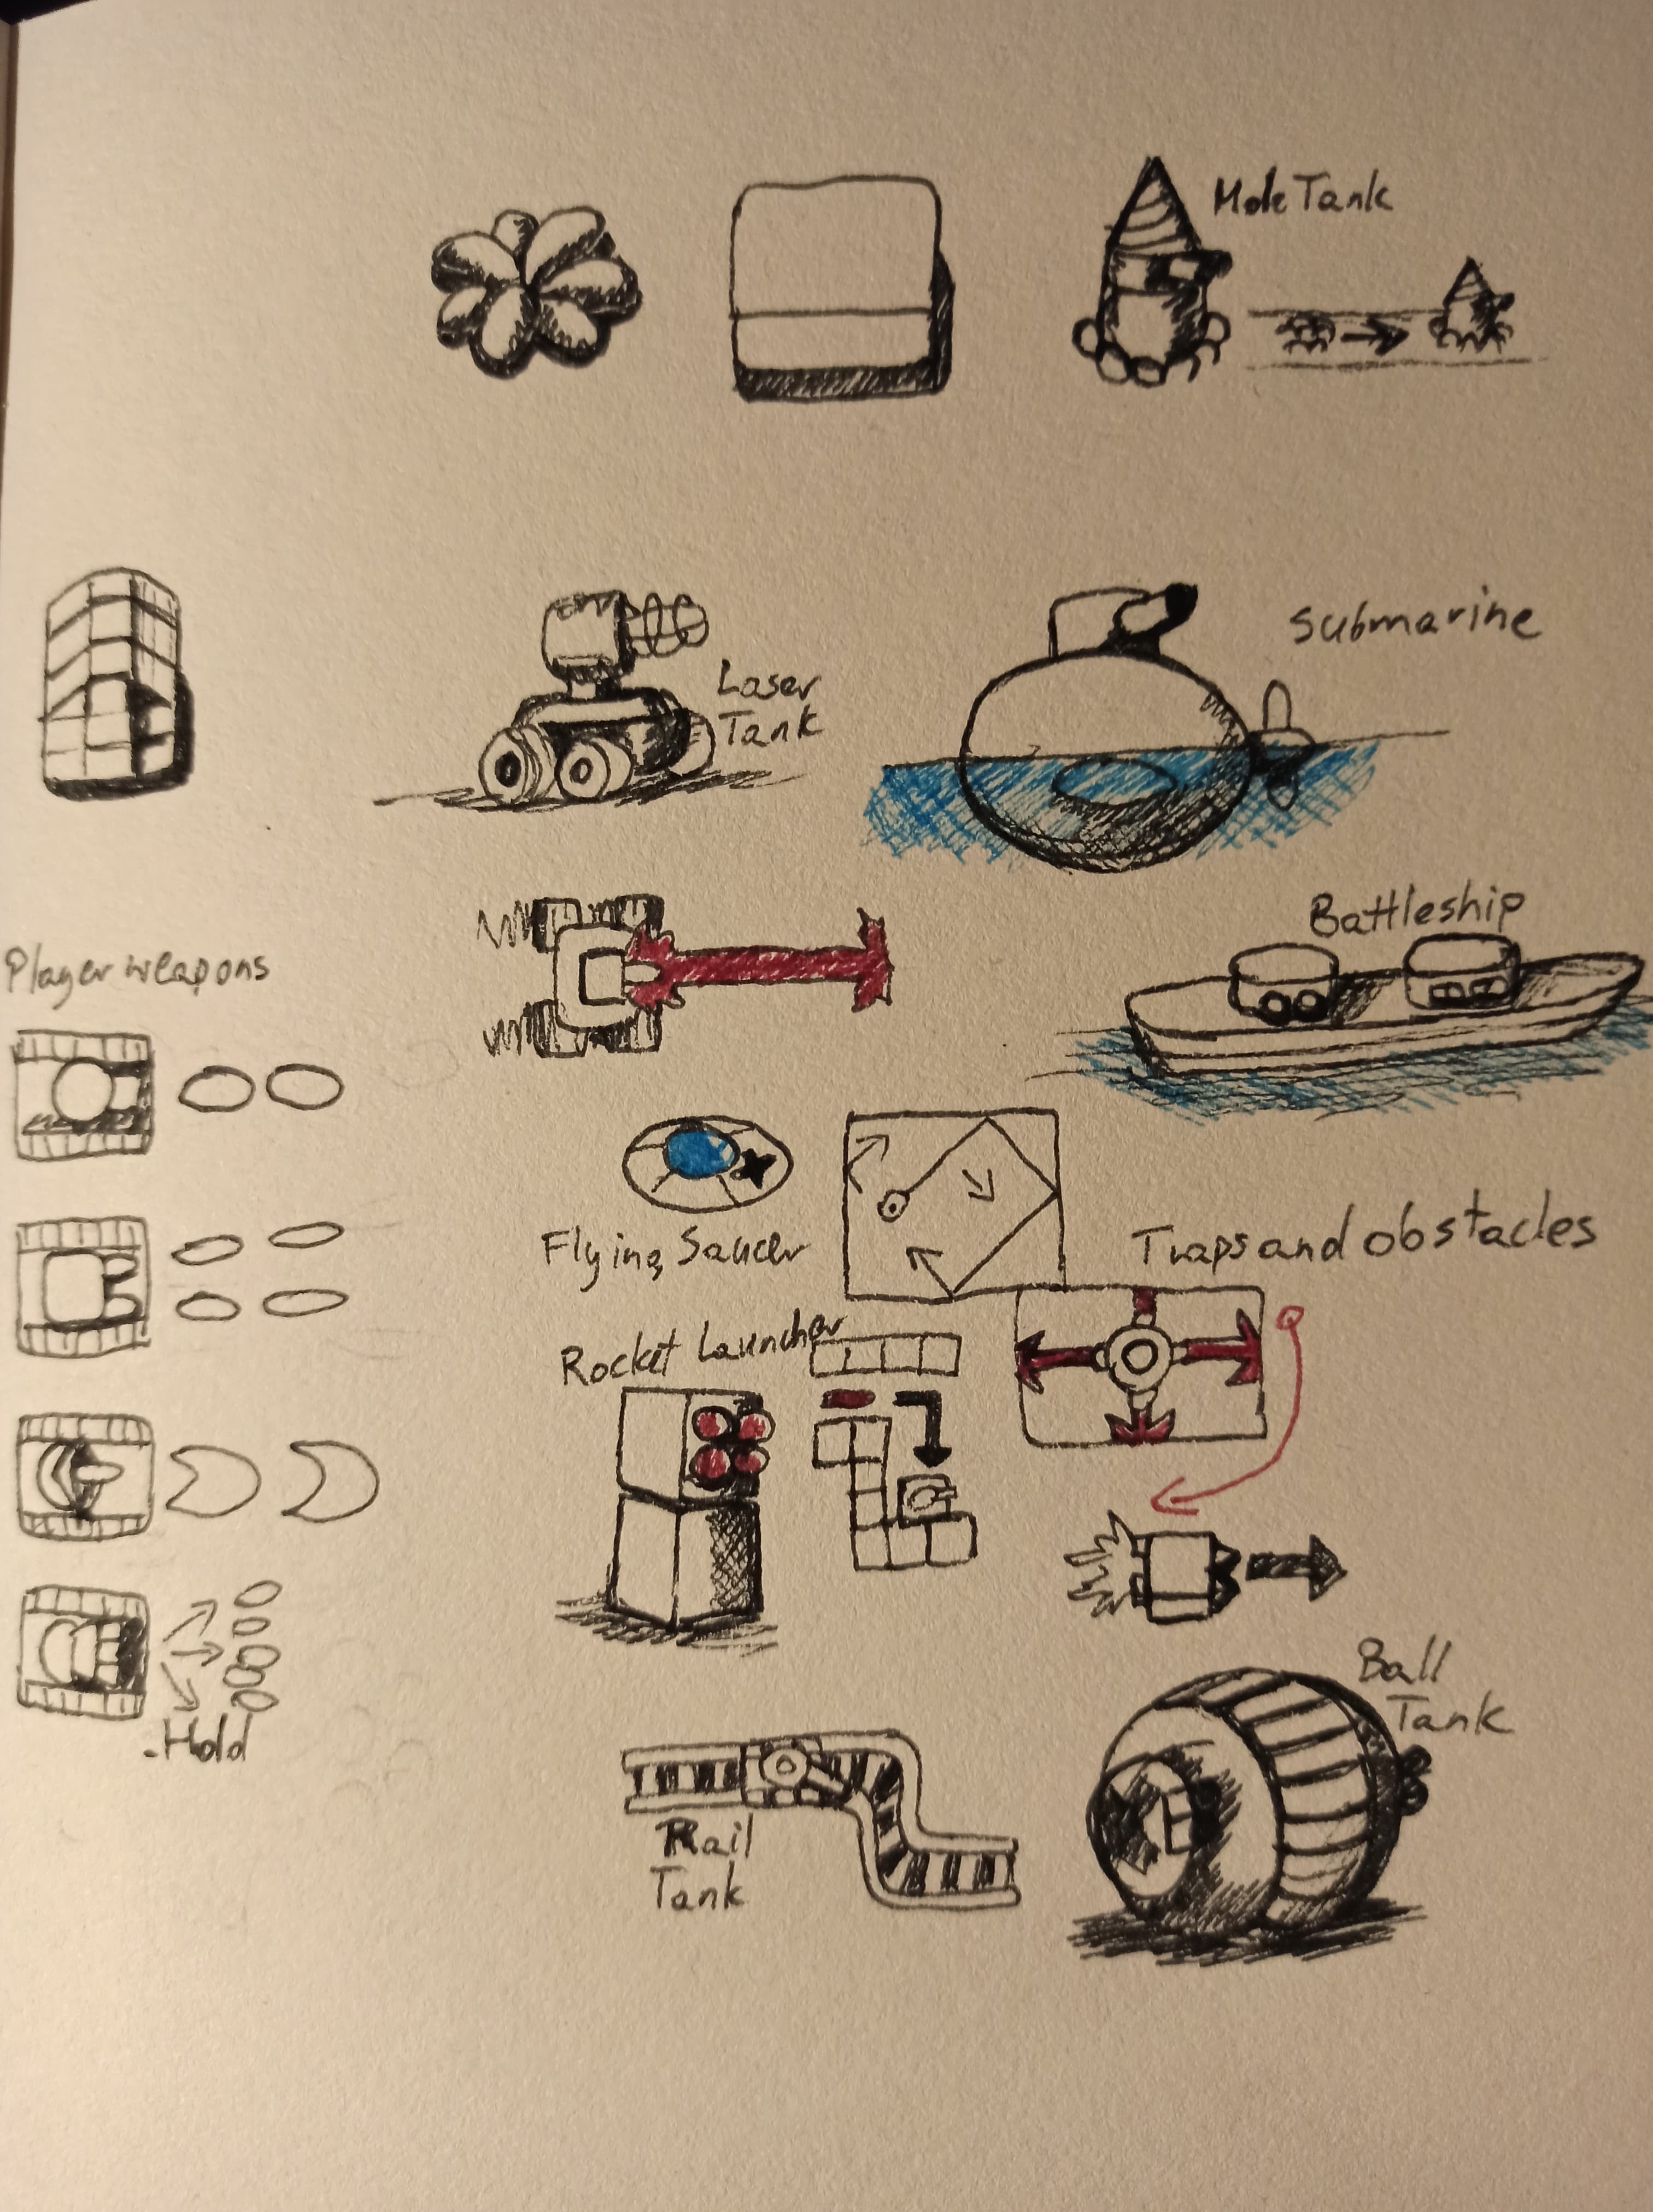 Mole Tank
Submarine
Laser
Tank
Battleship
Player weapons
Flying Saucer
Traps and obstacles
Rocket Launcher
Ball
Tank
- Hold
Rail
Tank